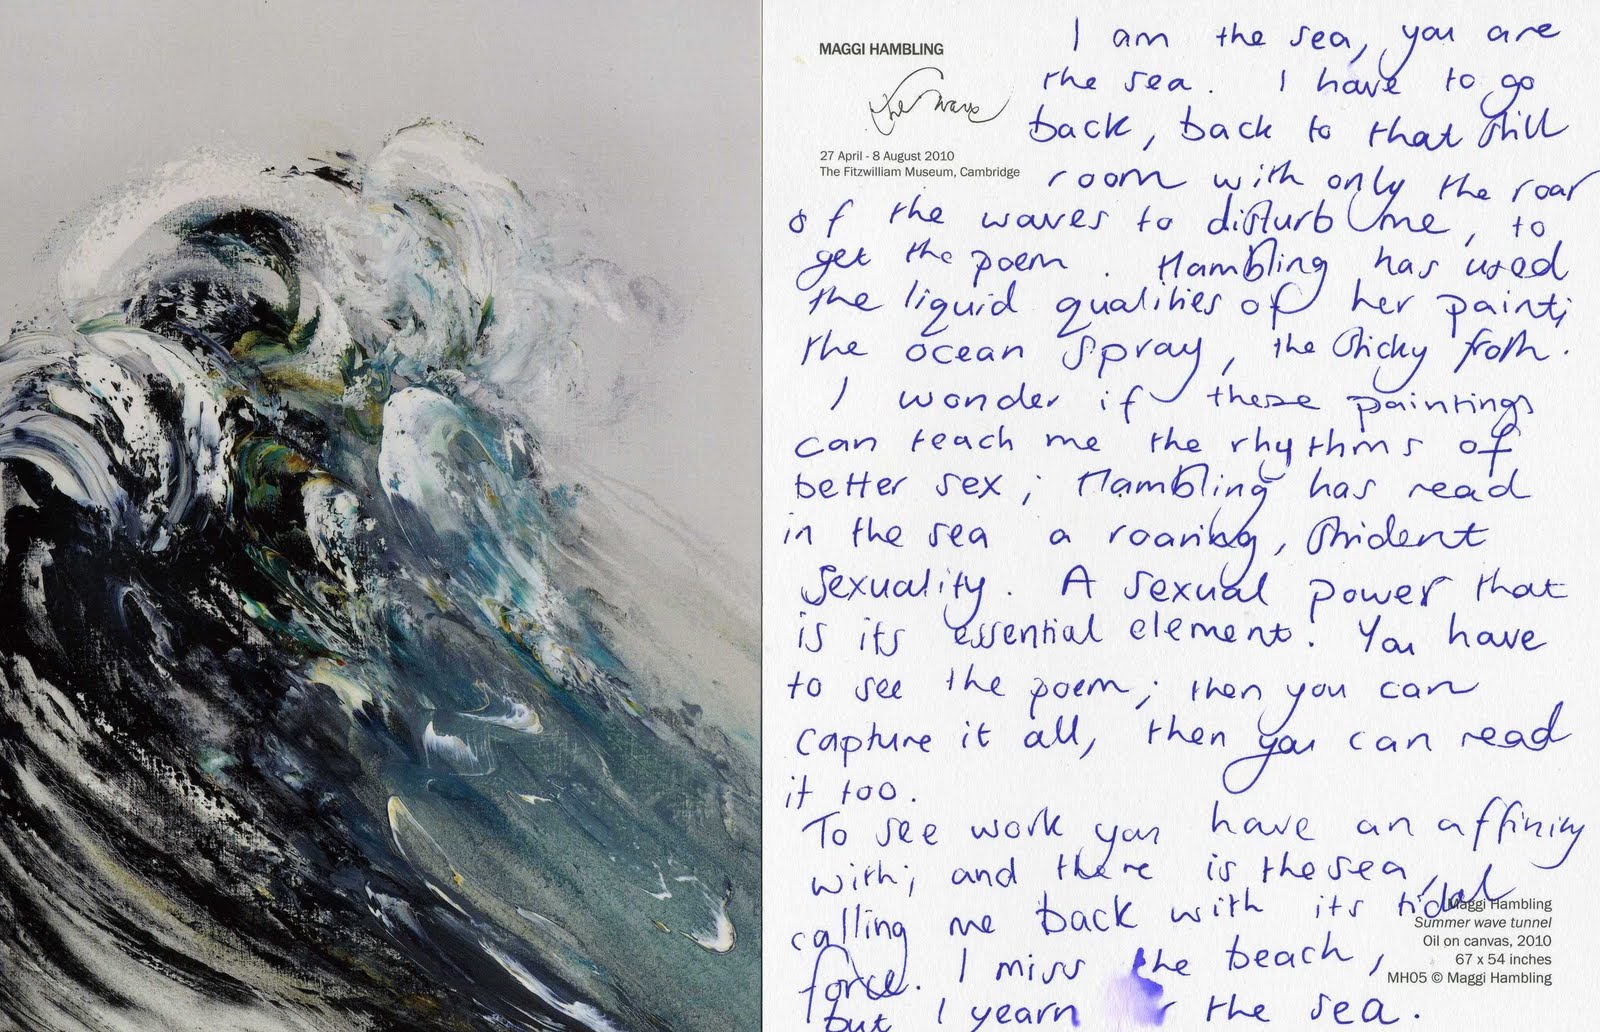 MAGGI HAMBLING
the wave
27 April - 8 August 2010
The Fitzwilliam Museum, Cambridge
I am the sea, you are
the sea. I have to go
back, back to that still
room with only the roar
of the waves to disturb me, to
get the poem. Hambling has used
the liquid qualities of her paint;
the ocean spray, the sticky froth.
I wonder if these paintings
can teach me the rhythms of
better sex; Hambling has read
in the sea a roaring, strident
sexuality. A sexual power that
is its essential element. You have
to see the poem; then you can
capture it all, then you can read
it too.
To see work you have an affinity
with; and there is the sea,
calling me back with its tidal
force. I miss the beach,
but I yearn the sea.
Maggi Hambling
Summer wave tunnel
Oil on canvas, 2010
67 x 54 inches
MH05 © Maggi Hambling